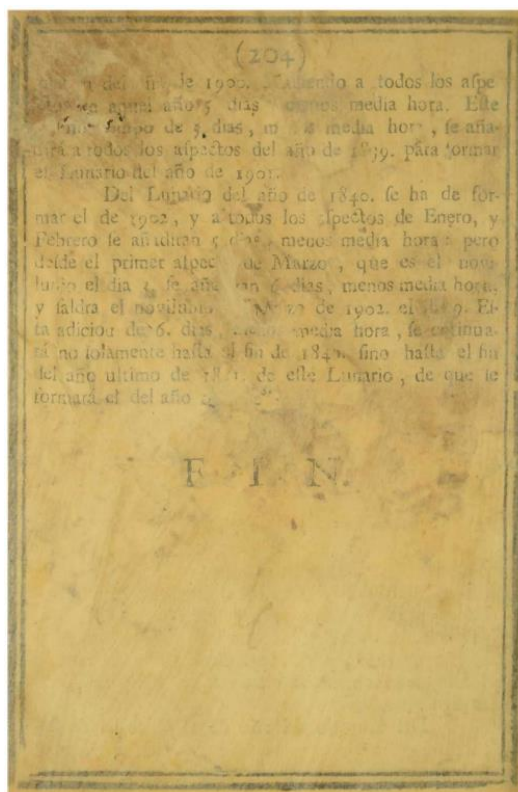 (204)
de 1900. a todos los aſpe-
aquel año 5 dias menos media hora. Eſte
de 5. dias, media hora, ſe aña-
dirà a todos los aſpectos del año de 1839. para formar
el Lunario del año de 1901.
Del Lunario del año de 1840. ſe ha de for-
mar el de 1902, y a todos los aſpectos de Enero, y
Febrero ſe añadiran 5 dias, menos media hora: pero
deſde el primer aſpecto de Marzo, que es el novi-
lunio el dia ſe añadiran 6. dias, menos media hora,
y ſaldra el novilunio Marzo de 1902. el 9. Eſ-
ta adicion de 6. dias, menos media hora, ſe continua-
rà no ſolamente haſta el fin de 1840. ſino haſta el fin
del año ultimo de de eſte Lunario, de que ſe
formarà el del año
F I N.